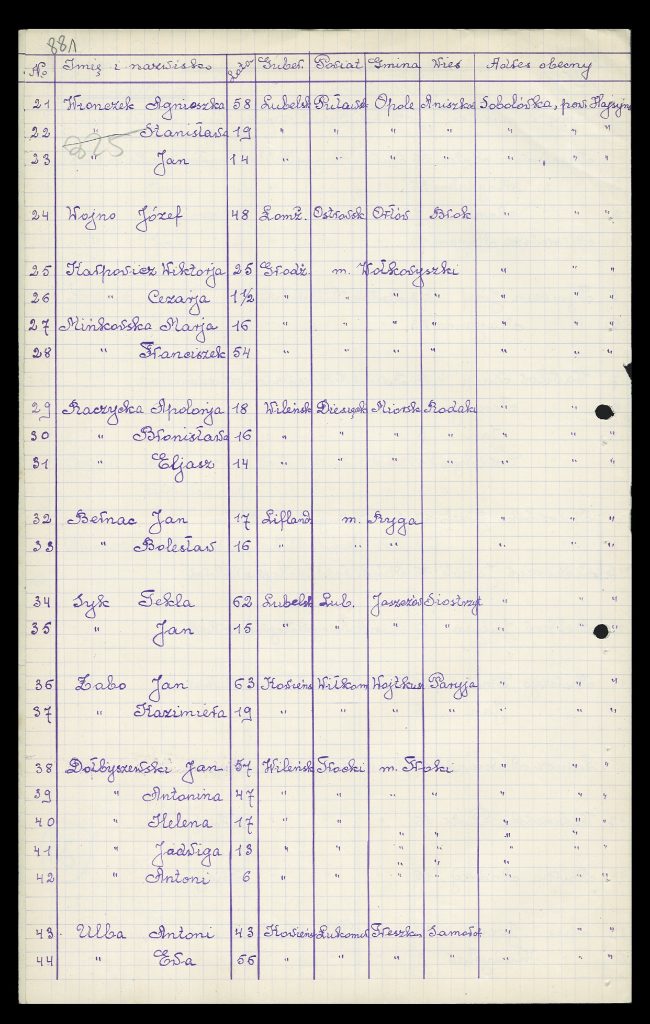 881
№ Imię i nazwisko Lata Guber. Powiat Gmina Wieś Adres obecny
21 Wronczek Agnieszka 58 Lubelsk Puławs Opole Aniszka Sobolówka, pow. Hajsyn
22 " Stanisława 19 " " " " " " "
825
23 " Jan 14 " " " " " " "
24 Wojno Józef 48 Łomż. Ostrowsk Orłów Brok " " "
25 Karpowicz Wiktorja 25 Grodź. m. Wołkowyszki " " "
26 " Cezarja 1½ " " " " " " "
27 Mińkowska Marja 16 " " " " " " "
28 " Franciszek 54 " " " " " " "
29 Raczycka Apolonja 18 Wileńsk Miorsk Rodaki " "
30 " Bronisława 16 " " " " " " "
31 " Eljasz 14 " " " " " "
32 Bernac Jan 17 Lifland. m. Ryga " " "
33 " Bolesław 16 " " " " " "
34 Syk Tekla 62 Lubelsk Lub. Jaszczów Siostrzyt " " "
35 " Jan 15 " " " " " "
36 Żabo Jan 63 Kowieńs Wiłkom Wojtkus Paryja " " "
37 " Kazimiera 19 " " " " " " "
38 Dołbyszewski Jan 57 Wileńsk Trocki m. Troki " " "
39 " Antonina 47 " " " " " " "
40 " Helena 17 " " " " " " "
41 " Jadwiga 13 " " " " " " "
42 " Antoni 6 " " " " " " "
43. Ulba Antoni 43 Kowieńs " " "
44 " Ewa 56 " " " " " " "